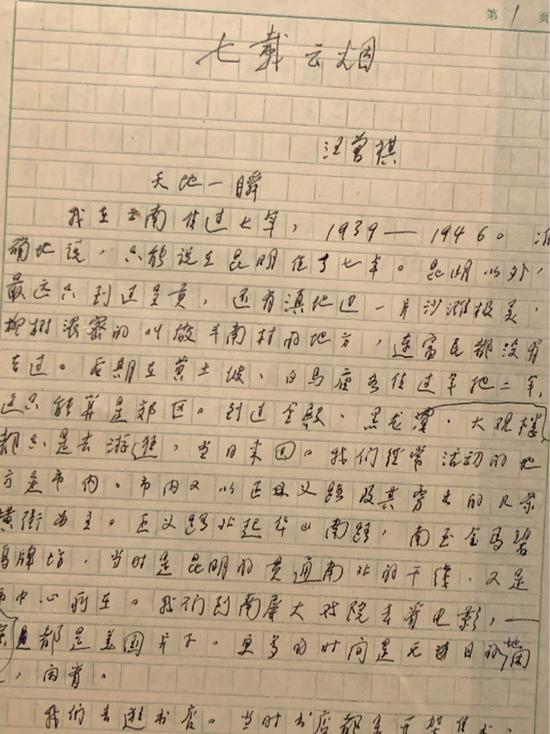 第 1 页
七载云烟
汪曾祺
天地一瞬
我在云南住过七年，1939—1946。准
确地说，只能说在昆明住了七年。昆明以外，
最远只到过呈贡，还有滇池边一片沙滩极美、
柳树浓密的叫做斗南村的地方，连富民都没有
去过。后期在黄土坡、白马庙各住过年把二年，
这只能算是郊区。到过金殿、黑龙潭、大观楼，
都只是去游逛，当日来回。我们经常活动的地
方是市内。市内又以正义路及其旁出的几条
横街为主。正义路北起华山南路，南至金马碧
鸡牌坊，当时是昆明的贯通南北的干线，又是
市中心所在。我们到南屏大戏院去看电影，——
演的都是美国片子。更多的时间是无目的地闲
走，闲看。
我们去逛书店。当时书店都是开架售书，